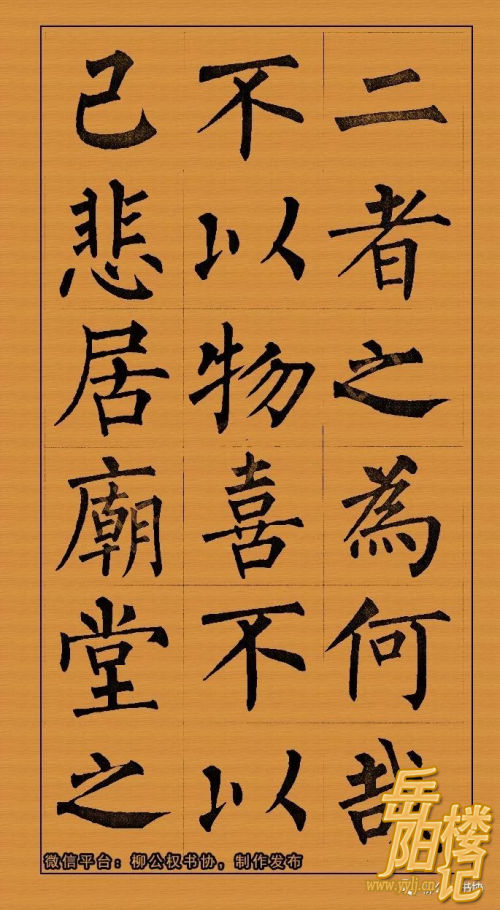 二者之為何哉
不以物喜不以
己悲居廟堂之
微信平台：柳公权书协，制作发布
岳阳楼记
www.yylj.cn
书协